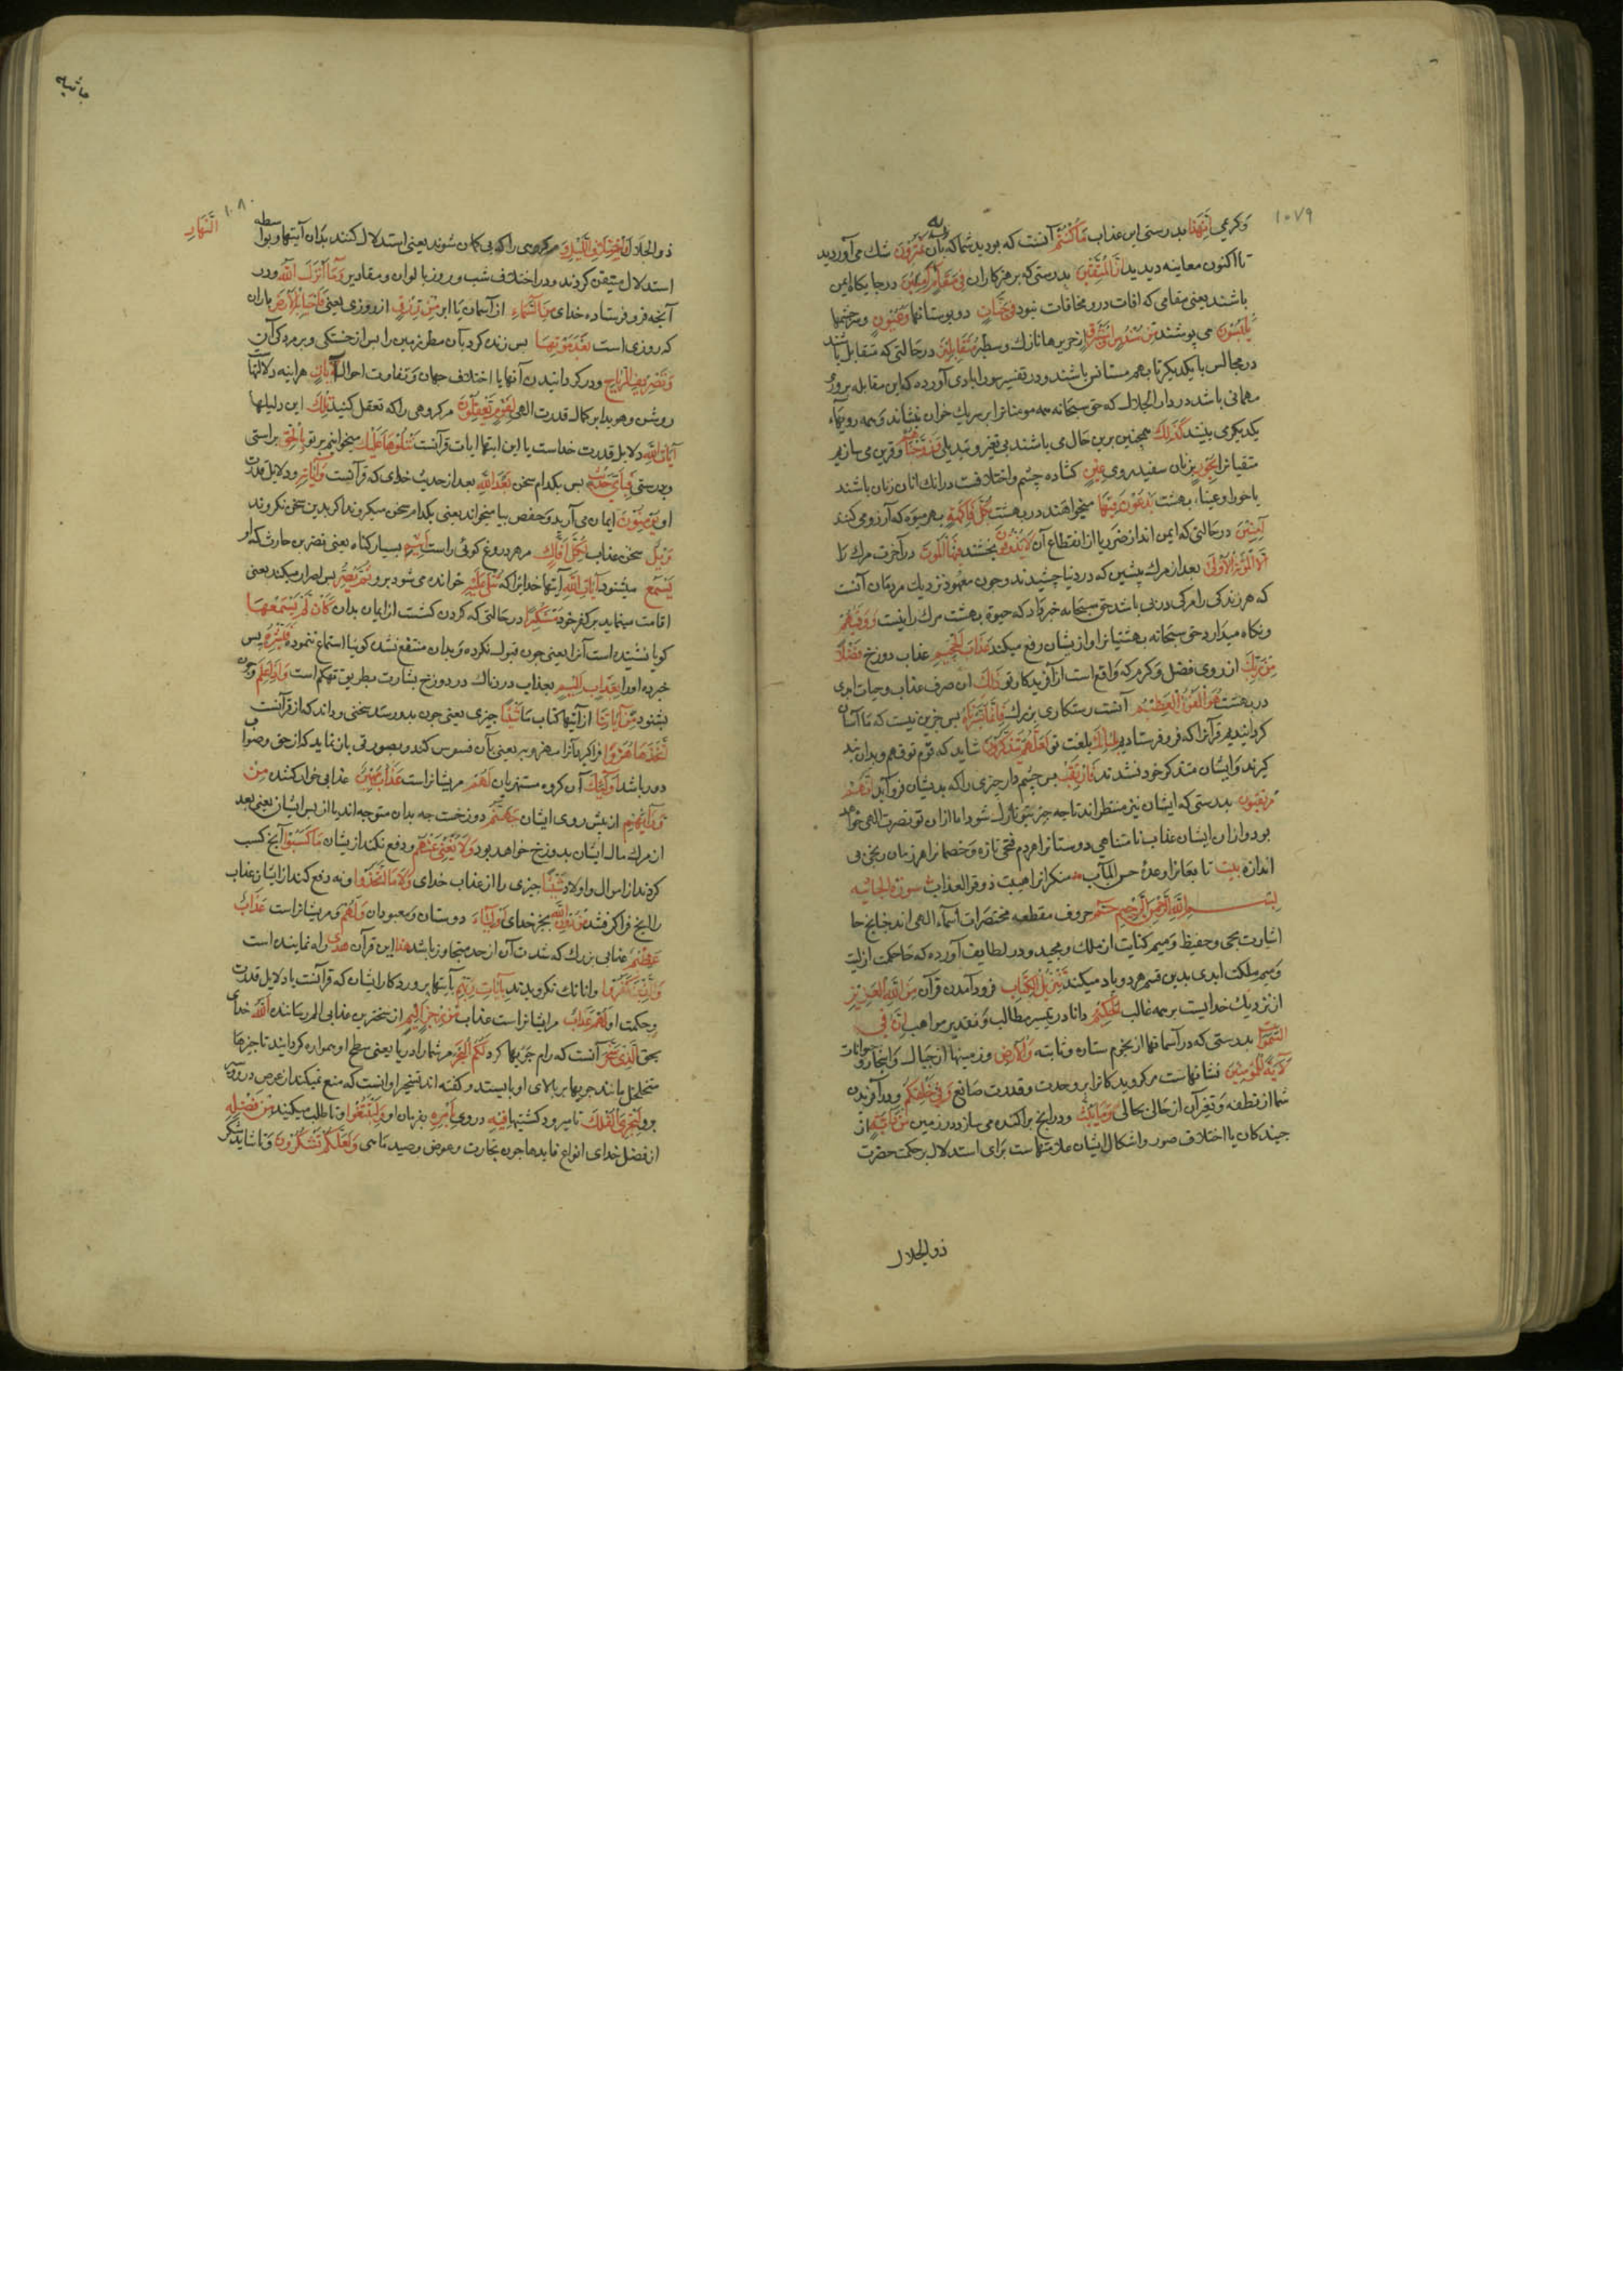 ١٠٧٩
وکرمی اِنَّ هٰذَا بدرستی این عذاب مَا کُنْتُمْ آنست که بودید شما که بِهٖ بآن تَمْتَرُوْنَ شك می آوردید
تا اکنون معاینه دیدید اِنَّ الْمُتَّقِیْنَ بدرستی که پرهیزکاران فِیْ مَقَامٍ اَمِیْنٍ در جایکاه ایمن
باشند یعنی مقامی که افات درو مخافات نبود فِیْ جَنَّاتٍ در بوستانها وَعُیُوْنٍ و چشمها
یَلْبَسُوْنَ می پوشند مِنْ سُنْدُسٍ وَاِسْتَبْرَقٍ از حریرها نازك وسطبر مُتَقَابِلِیْنَ در حالتی که متقابل باشند
در مجالس با یکدیکر تا بهم مستانس باشند و در تفسیر سورابادی آورده که این مقابله بروز
مهمانی باشد در دار الجلال که حق سبحانه همه مومنانرا بر سر یك خوان بنشاند و همه رویهاء
یکدیکری بینند کَذٰلِكَ همچنین برین حال می باشند بی تغیر و تبدیلی وَزَوَّجْنَاهُمْ وقرین می سازیم
متقیانرا بِحُوْرٍ بزنان سفید روی عِیْنٍ کشاده چشم واختلافست در انك انان زنان باشند
یا حورا وعیناء بهشت یَدْعُوْنَ فِیْهَا میخواهند در بهشت بِکُلِّ فَاکِهَةٍ بهر میوه که آرزو می کنند
اٰمِنِیْنَ در حالتی که ایمن اند از ضرر یا از انقطاع آن لَا یَذُوْقُوْنَ نچشند فِیْهَا الْمَوْتَ در آخرت مرك را
اِلَّا الْمَوْتَةَ الْاُوْلٰی بعد از مرك پیشین که در دنیا چشیدند وچون معهود نزدیك مردمان آنست
که هر زندکی را مرکی در پی باشد حق سبحانه خبر داد که حیوة بهشت مرك را نیست وَوَقٰیهُمْ
ونکاه میدارد حق سبحانه بهشتیانرا و از یشان رفع میکند عَذَابَ الْجَحِیْمِ عذاب دوزخ فَضْلًا
مِنْ رَبِّكَ از روی فضل وکرم که واقع است از آفریدکار تو ذٰلِكَ آن صرف عذاب وحیات ابدی
در بهشت هُوَ الْفَوْزُ الْعَظِیْمُ آنست رستکاری بزرك فَاِنَّمَا یَسَّرْنَاهُ پس جزین نیست که ما آسان
کردانیدیم قرآنرا که فرو فرستادیم بِلِسَانِكَ بلغت تو لَعَلَّهُمْ یَتَذَکَّرُوْنَ شاید که قوم تو فهم وبدان پند
کیرند و ایشان متذکر خود نشدند فَارْتَقِبْ پس چشم دار چیزی را که بدیشان فرو آید اِنَّهُمْ
مُرْتَقِبُوْنَ بدرستی که ایشان نیز منتظراند تا چه چیز بتو نازل شود اما ازان تو نصرت الهی خواهد
بود و ازان ایشان عذاب نامتناهی دوستانرا هر دم فتحی تازه وخصمانرا هر زمان رنجی بی
اندازه بیت تابعانرا وعدۀ حسن المآب منکرانرا هیبت ذوقوا العذاب سورة الجاثیه
بِسْمِ اللّٰهِ الرَّحْمٰنِ الرَّحِیْمِ حٰمٓ حروف مقطعه مختصرات اسماء الهی اند چنانچ حا
اشارت بحی وحفیظ ومیم کنایت از ملك ومجید ودر لطایف آورده که حا حکمت ازلیت
ومیم ملکت ابدی بدین قسم هر دو یاد میکند تَنْزِیْلُ الْکِتَابِ فرود آمدن قرآن مِنَ اللّٰهِ الْعَزِیْزِ
از نزدیك خدایست بر همه غالب الْحَکِیْمِ دانا در تیسیر مطالب وتقدیر مواهب اِنَّ فِیْ
السَّمٰوَاتِ بدرستی که در آسمانها از نجوم ستاره وثابته وَالْاَرْضِ وزمینها از جبال وانجار وحیوانات
لَاٰیٰةٍ لِلْمُؤْمِنِیْنَ نشانهاست مر کرویدکانرا بر وحدت وقدرت صانع وَفِیْ خَلْقِکُمْ ودر آفریدن
شما از نطفه وتغیر آن از حالی بحالی وَمَا یَبُثُّ ودر انچ پراکنده می سازد در زمین مِنْ دَابَّةٍ از
جنبدکان یا اختلاف صور واشکال ایشان علامتهاست برای استدلال بر حکمت حضرت
ذوالجلال
جاثیه
١٠٨٠
النَّهَارِ
ذوالجلال وَاخْتِلَافِ اللَّیْلِ وَ مر کروهی را که بی کمان شوند یعنی استدلال کنند بدان آیتها وبواسطه
استدلال متیقن کردند ودر اختلاف شب وروز بالوان ومقادیر وَمَا اَنْزَلَ اللّٰهُ ودر
آنچه فرو فرستاده خدای مِنَ السَّمَاءِ از آسمان یا ابر مِنْ رِزْقٍ از روزی یعنی فَاَحْیَا بِهِ الْاَرْضَ باران
که روزی است بَعْدَ مَوْتِهَا پس زنده کرد بآن مطر زمین را پس از خشکی وپژمردکی آن
وَتَصْرِیْفِ الرِّیَاحِ ودر کردانیدن آنها یا اختلاف جهان وتفاوت احوال اٰیَاتٌ هراینه دلالتها
روشن وهویدا بر کمال قدرت الهی لِقَوْمٍ یَعْقِلُوْنَ مر کروهی را که تعقل کنید تِلْكَ این دلیلها
اٰیَاتُ اللّٰهِ دلایل قدرت خداست یا این ایتها ایات قرآنست نَتْلُوْهَا عَلَیْكَ میخوانیم بر تو بِالْحَقِّ براستی
ودرستی فَبِاَیِّ حَدِیْثٍ پس بکدام سخن بَعْدَ اللّٰهِ بعد از حدیث خدای که قرآنست وَاٰیَاتِهٖ ودلایل قدرت
او یُؤْمِنُوْنَ ایمان می آرید وحفص بیا میخواند یعنی بکدام سخن میکروند اکر بدین سخن نکروند
وَیْلٌ سخن عذاب لِکُلِّ اَفَّاكٍ مر هر دروغ کوئی راست اَثِیْمٍ بسیار کناه یعنی نضر بن حارث که او
یَسْمَعُ میشنود اٰیَاتِ اللّٰهِ آیتها خدایرا که تُتْلٰی عَلَیْهِ خوانده می شود برو ثُمَّ یُصِرُّ پس اصرار میکند یعنی
اقامت مینماید بر کفر خود مُسْتَکْبِرًا در حالتی که کردن کشست از ایمان بدان کَاَنْ لَمْ یَسْمَعْهَا
کویا نشنیده است آنرا یعنی چون قبول نکرده وبدان منتفع نشد کویا استماع ننموده فَبَشِّرْهُ پس
خبر ده اورا بِعَذَابٍ اَلِیْمٍ بعذاب دردناك در دوزخ بشارت بطریق تهکم است وَاِذَا عَلِمَ وچون
بشنود مِنْ اٰیَاتِنَا از آیتها کتاب ما شَیْئًا چیزی یعنی چون بدو رسد سخنی وداند که از قرآنست
اِتَّخَذَهَا هُزُوًا فراکیرد آنرا سخریه یعنی بآن فسوس کند وبصورتی باز نماید که از حق وصواب
دور باشد اُولٰئِكَ آن کروه مستهزیان لَهُمْ مر یشانراست عَذَابٌ مُهِیْنٌ عذابی خوار کننده مِنْ
وَرَائِهِمْ از پیش روی ایشان جَهَنَّمُ دوزخست چه بدان متوجه اند یا از پس ایشان یعنی بعد
از مرك مال ایشان بدوزخ خواهد بود وَلَا یُغْنِیْ عَنْهُمْ ودفع نکند ازیشان مَا کَسَبُوْا آنچ کسب
کرده اند از اموال و اولاد شَیْئًا چیزی را از عذاب خدای وَلَا مَا اتَّخَذُوْا ونه دفع کند از ایشان عذاب
را انچ فراکرفتند مِنْ دُوْنِ اللّٰهِ بجز خدای اَوْلِیَاءَ دوستان ومعبودان وَلَهُمْ ومر یشانراست عَذَابٌ
عَظِیْمٌ عذابی بزرك که شدت آن از حد متجاوز باشد هٰذَا این قرآن هُدًی راه نماینده است
وَالَّذِیْنَ کَفَرُوْا وانانك نکرویدند بِاٰیَاتِ رَبِّهِمْ بآیتها پروردکار ایشان که قرآنست یا دلایل قدرت
وحکمت او لَهُمْ عَذَابٌ مر ایشانراست عذاب مِنْ رِجْزٍ اَلِیْمٍ از سخترین عذابی الم رساننده اَللّٰهُ خدای
بحق الَّذِیْ سَخَّرَ آنست که رام کرد لَکُمُ الْبَحْرَ مر شما را دریا یعنی سطح او هموار کردانید تا چیزها
متخلخل مانند چوبها بر بالای او بایستد وکفته اند تسخیر او انست که منع نمیکند از غوص در
برو لِتَجْرِیَ الْفُلْكُ تا میرود کشتیها فِیْهِ در وی بِاَمْرِهٖ بفرمان او وَلِتَبْتَغُوْا وتا طلب میکنید مِنْ فَضْلِهٖ
از فضل خدای انواع فایدها چون تجارت وغوص وصید ماهی وَلَعَلَّکُمْ تَشْکُرُوْنَ وتا شاید شکر